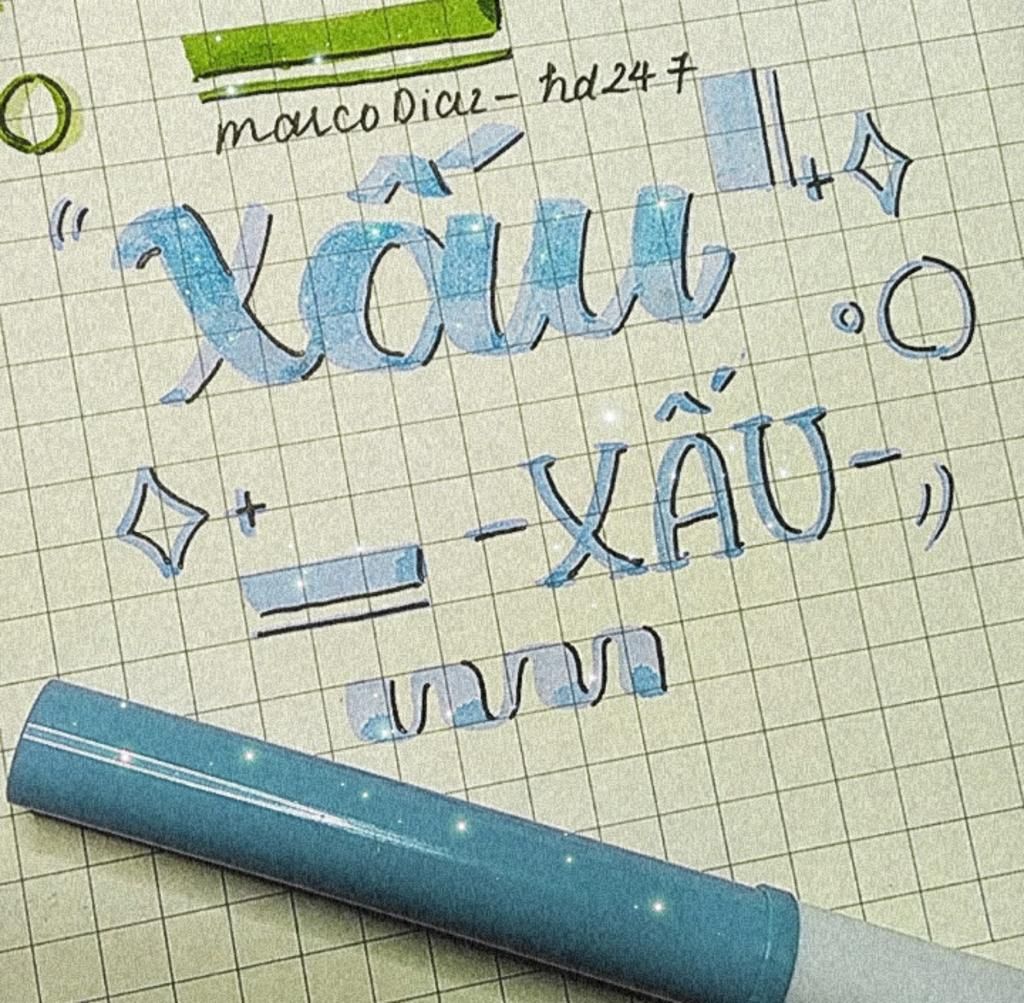 marco Diaz - hd247
"xấu
-XẤU-"